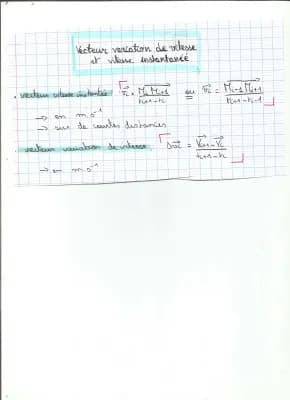 Vecteur variation de vitesse
et vitesse instantanée
• vecteur vitesse instantée : v⃗i = MiMi+1 / ti+1-ti ou v⃗i = Mi-1Mi+1 / ti+1-ti-1
→ en m.s⁻¹
→ sur de courtes distances
• vecteur variation de vitesse : Δv⃗i = V⃗i+1-V⃗i / ti+1-ti
→ en m.s⁻¹